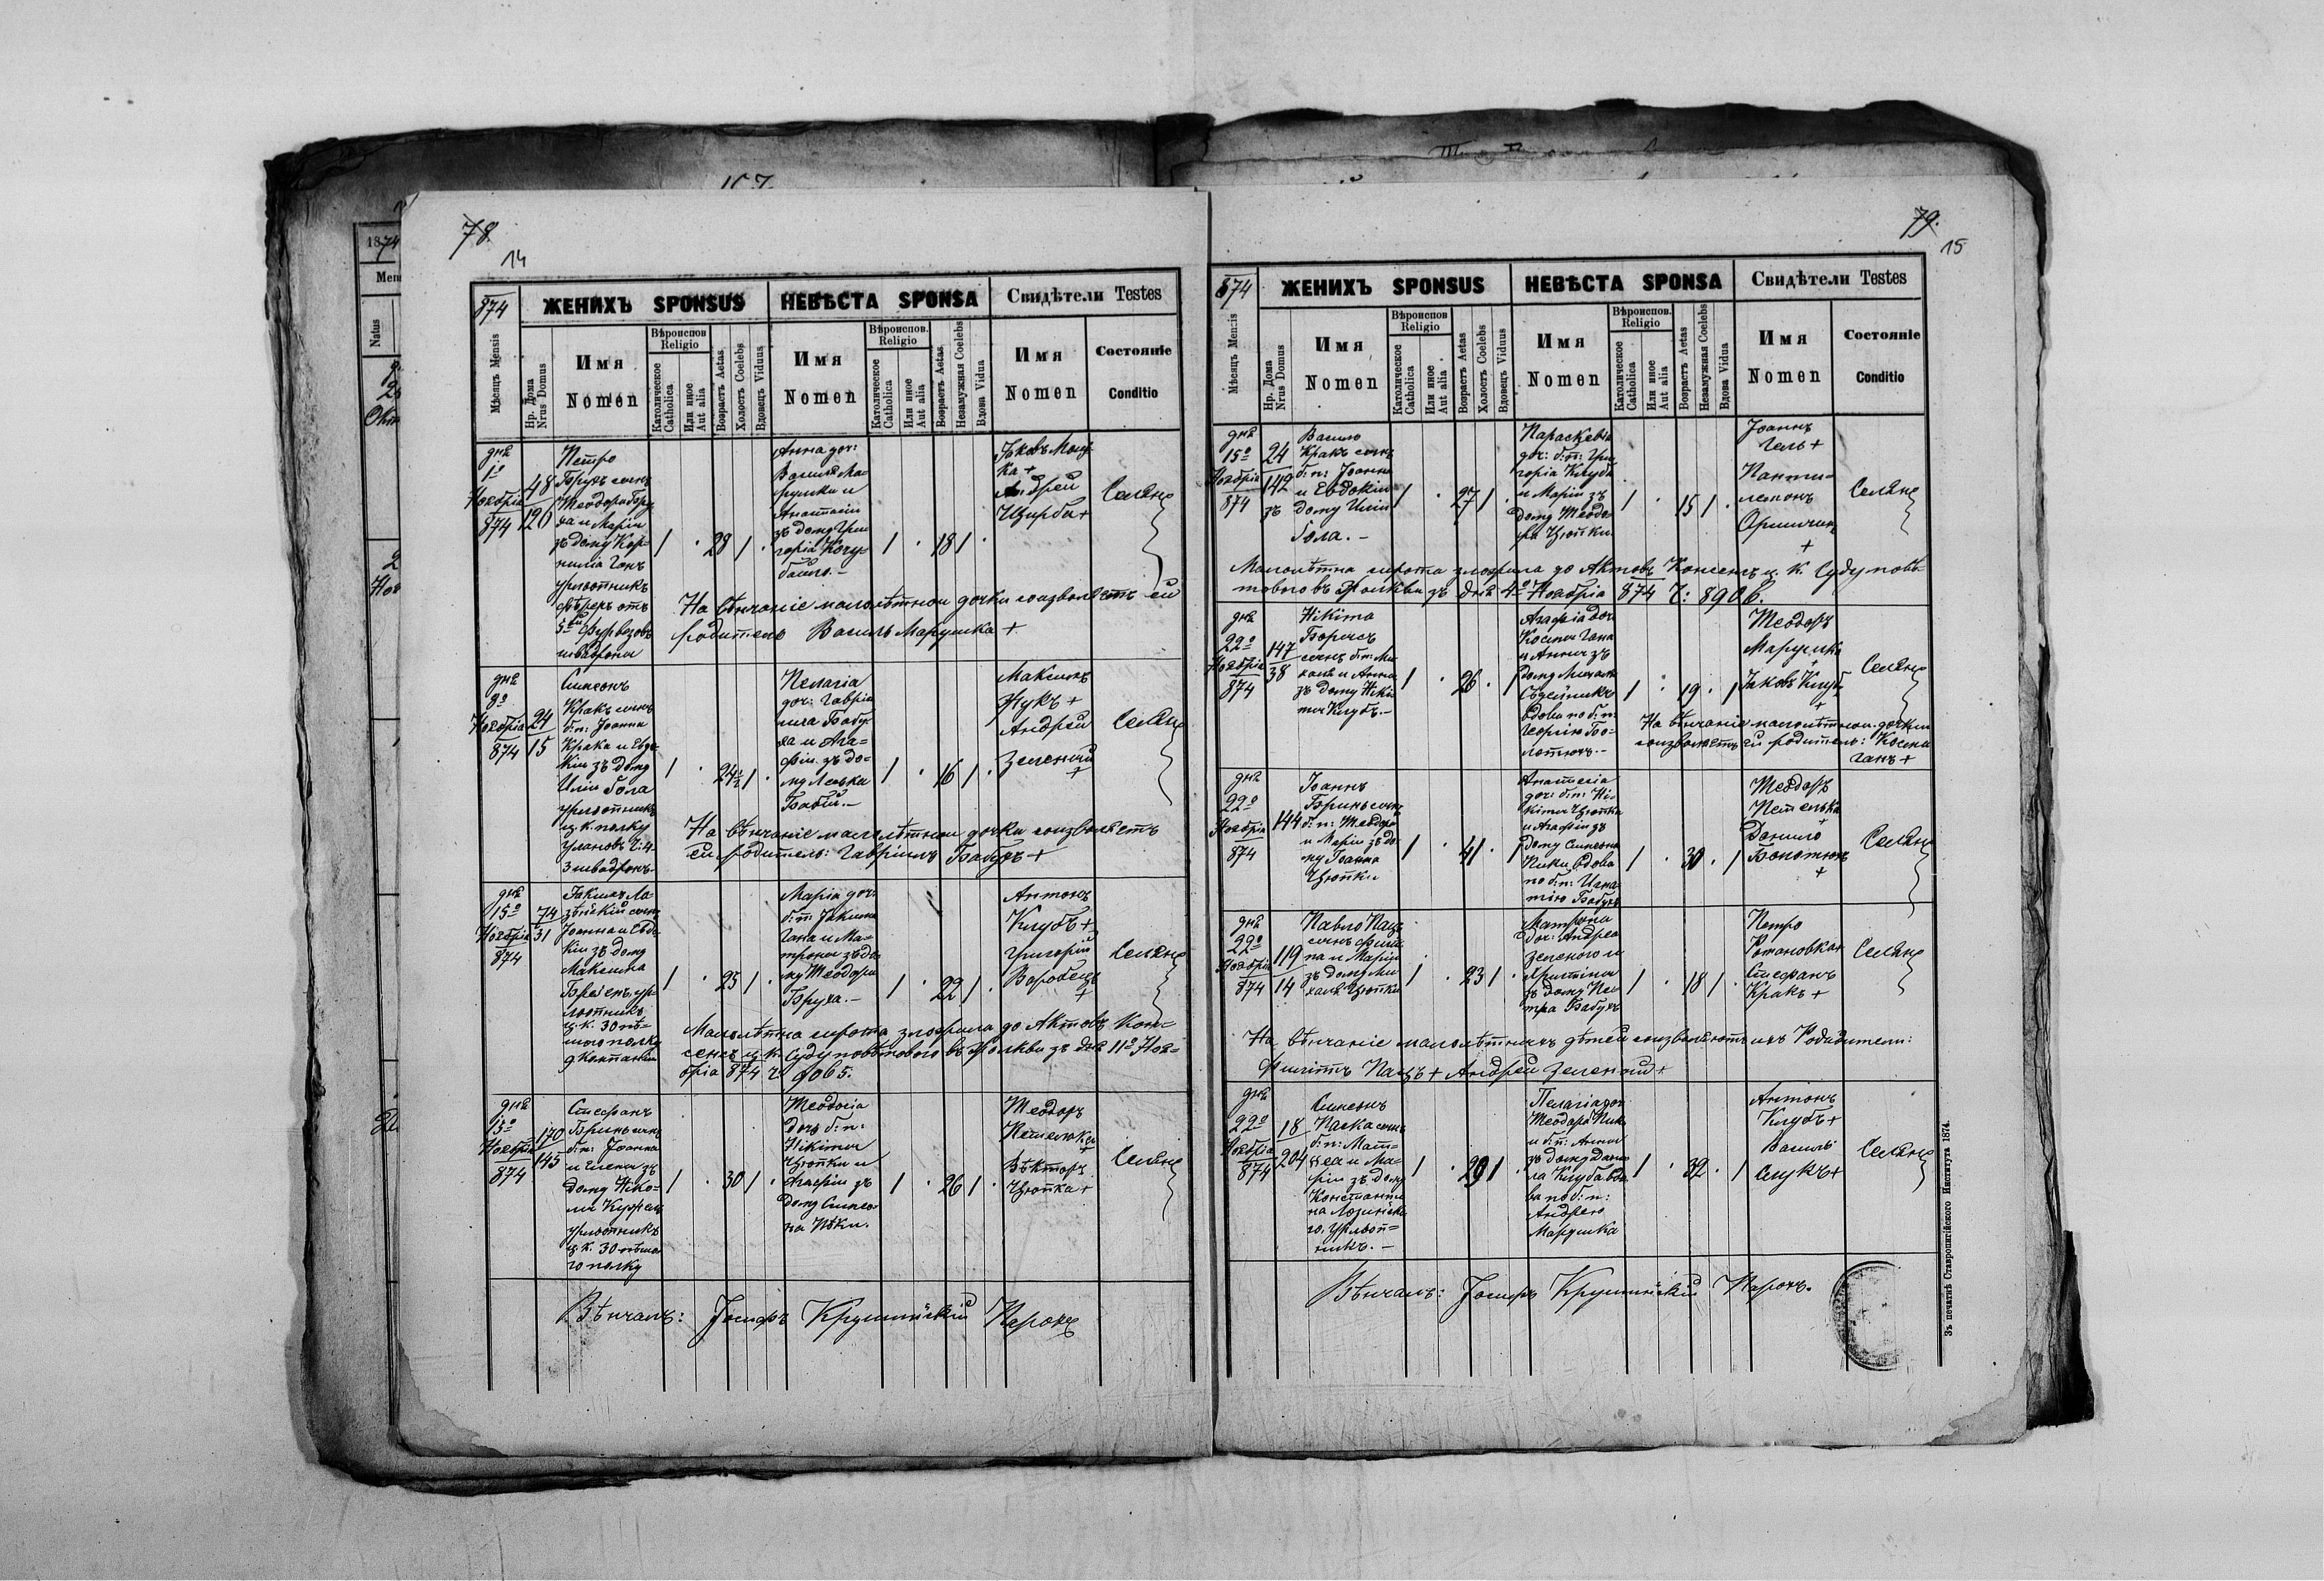 78.
14
874
ЖЕНИХЪ SPONSUS
НЕВѢСТА SPONSA
Свидѣтели Testes
Мѣсяць Mensis
Нр. Дома Nrus Domus
Имя Nomen
Вѣроиспов Religio
Католическое Catholica
Или иное Aut alia
Возрастъ Aetas
Холостъ Coelebs
Вдовець Viduus
Имя Nomen
Вѣроиспов. Religio
Католическое Catholica
Или иное Aut alia
Возрастъ Aetas
Незамужная Coelebs
Вдова Vidua
Имя Nomen
Состоянiе Conditio
днѣ
1º
Ноябрія
874
48
120
Петро
Брухъ сынъ
Теодора Бру
ха и Маріи
зъ дому Кор-
нилія Ганъ
урльопникъ
1 . 28 1 .
Анна доч:
Василя Ма-
рушки и
Анастасіи
зъ дому Гри
горія Кочу-
1 . 18 1 .
Яковъ
ка +
Андрей
Щирба +
Селяне
На вѣнчаніе малолѣтнои дочки соизволяетъ ей
родитель Василь Марушка +
днѣ
8º
Ноябрія
874
24
15
Симеонъ
Кракъ сынъ
б: п: Іоанна
Крака и Евдо
кіи зъ дому
Иліи Гола
урльопникъ
ц. к. полку
улановъ Ч: 4
3 швадронъ
1 . 24½ 1 .
Пелагія
доч: Гаврі
ила Бабух
ха и Ага-
фіи зъ до-
му Леська
Бабій. –
1 . 16 1 .
Максимъ
Жукъ +
Андрей
Зеленый
+
Селяне
На вѣнчаніе малолѣтнои дочки соизволяетъ
ей родитель: Гавріилъ Бабухъ +
днѣ
15º
Ноябрія
874
74
31
Якимъ Ла
зѣнскій сынъ
Іоанна и Евдо
кіи зъ дому
Максима
1 . 25 1 .
Марія доч:
б: п: Якима
Гана и Ма-
троны зъ до
му Теодора
Бруха. –
1 . 22 1 .
Антонъ
Клубъ +
Григорій
Воробець
+
Селяне
Малолѣтна сирота зложила до Актовъ Кон-
сенсъ ц. к. Суду повѣтового въ Жолкви зъ дня 11º Ноя-
брія 874 ч. 9065.
днѣ
15º
Ноябрія
874
170
145
Стефанъ
Боринъ сынъ
б: п: Іоанна
и Елены зъ
дому Нико-
урльопникъ
ц. к. 30 пѣшо
го полку
1 . 30 1 .
Теодосія
доч: б: п:
Никиты
Цюпки и
Агафіи зъ
дому Симео
на Пики.
1 . 26 1 .
Теодоръ
Петелька
+
Вѣкторъ
Цюпка +
Селяне
Вѣнчалъ: Іосифъ Крушинскій Парохъ
79.
15
874
ЖЕНИХЪ SPONSUS
НЕВѢСТА SPONSA
Свидѣтели Testes
Мѣсяць Mensis
Нр. Дома Nrus Domus
Имя Nomen
Вѣроиспов Religio
Католическое Catholica
Или иное Aut alia
Возрастъ Aetas
Холостъ Coelebs
Вдовець Viduus
Имя Nomen
Вѣроиспов. Religio
Католическое Catholica
Или иное Aut alia
Возрастъ Aetas
Незамужная Coelebs
Вдова Vidua
Имя Nomen
Состоянiе Conditio
днѣ
15º
Ноябрія
874
24
142
Василь
Кракъ сынъ
б: п: Іоанна
и Евдокіи
зъ дому Иліи
Гола. –
1 . 27 1 .
Параскевія
доч: б: п: Гри
горія Клуба
и Маріи зъ
дому Теодо
ра Цюпки.
1 . 15 1 .
Іоаннъ
Гель +
Панти-
лемонъ
+
Селяне
Малолѣтна сирота зложила до Актовъ Консенсъ ц. к. Суду повѣ-
тового въ Жолкви зъ дня 4º Ноябрія 874 Ч: 8906.
днѣ
22º
Ноябрія
874
147
38
Никита
сынъ б: п: Ми
хаила и Анны
зъ дому Ники
ты Клубъ. –
1 . 26 . 1
Агафія доч:
Косты Гана
и Анны зъ
дому Михаила
вдова по б: п:
Георгію Бо-
лотюкъ. –
1 . 19 . 1
Теодоръ
Марушка
+
Яковъ Клуб
+
Селяне
На вѣнчаніе малолѣтнои дочки
соизволяетъ ей родитель: Коста
Ганъ +
днѣ
22º
Ноябрія
874
144
Іоаннъ
Боринъ сынъ
б: п: Теодора
и Маріи зъ до
му Іоанна
Цюпки
1 . 41 . 1
Анастасія
доч: б: п: Ни-
киты Цюпки
и Агафіи зъ
дому Симеона
Пики, вдова
по б: п: Игна
тію Бабухъ
1 . 30 . 1
Теодоръ
Петелька
+
Данило
Болотюкъ
+
Селяне
днѣ
22º
Ноябрія
874
119
14
Павло Паць
сынъ Фили
па и Маріи
зъ дому Ми
хаила Цюпки
1 . 23 1 .
Матрона
доч: Андрея
Зеленого и
Христины
зъ дому Пе
тра Бабухъ
1 . 18 1 .
Петро
Романовка +
Стефанъ
Кракъ +
Селяне
На вѣнчаніе малолѣтныхъ дѣтей соизволяютъ ихъ Родители:
Филіпъ Паць + Андрей Зеленый +
днѣ
22º
Ноябрія
874
18
204
Симеонъ
Паска сынъ
б: п: Мат-
ѳеа и Ма-
ріи зъ дому
Константи
на Лозинско
го. Урльоп-
никъ. –
1 . 29 1 .
Пелагія доч:
Теодора Пики
и б: п: Анны
зъ дому Дани
ла Клуба, вдо
ва по б: п:
Андрею
Марушка
1 . 32 . 1
Антонъ
Клубъ +
Василь
Слукъ +
Селяне
Вѣнчалъ: Іосифъ Крушинскій Парохъ.
Зъ печатнѣ Ставропигійского Института 1874.